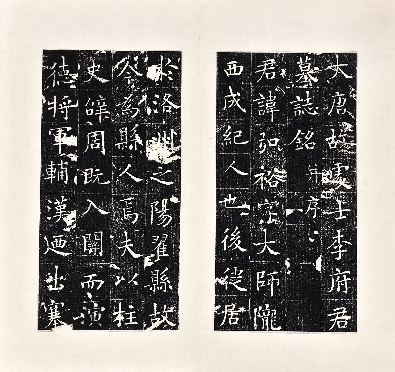 大唐故處士李府君
墓誌銘并序
君諱弘裕字大師隴
西成紀人也後徙居
於洛州之陽翟縣故
今為縣人焉夫以柱
史辭周既入關而演
德將軍輔漢迺出塞